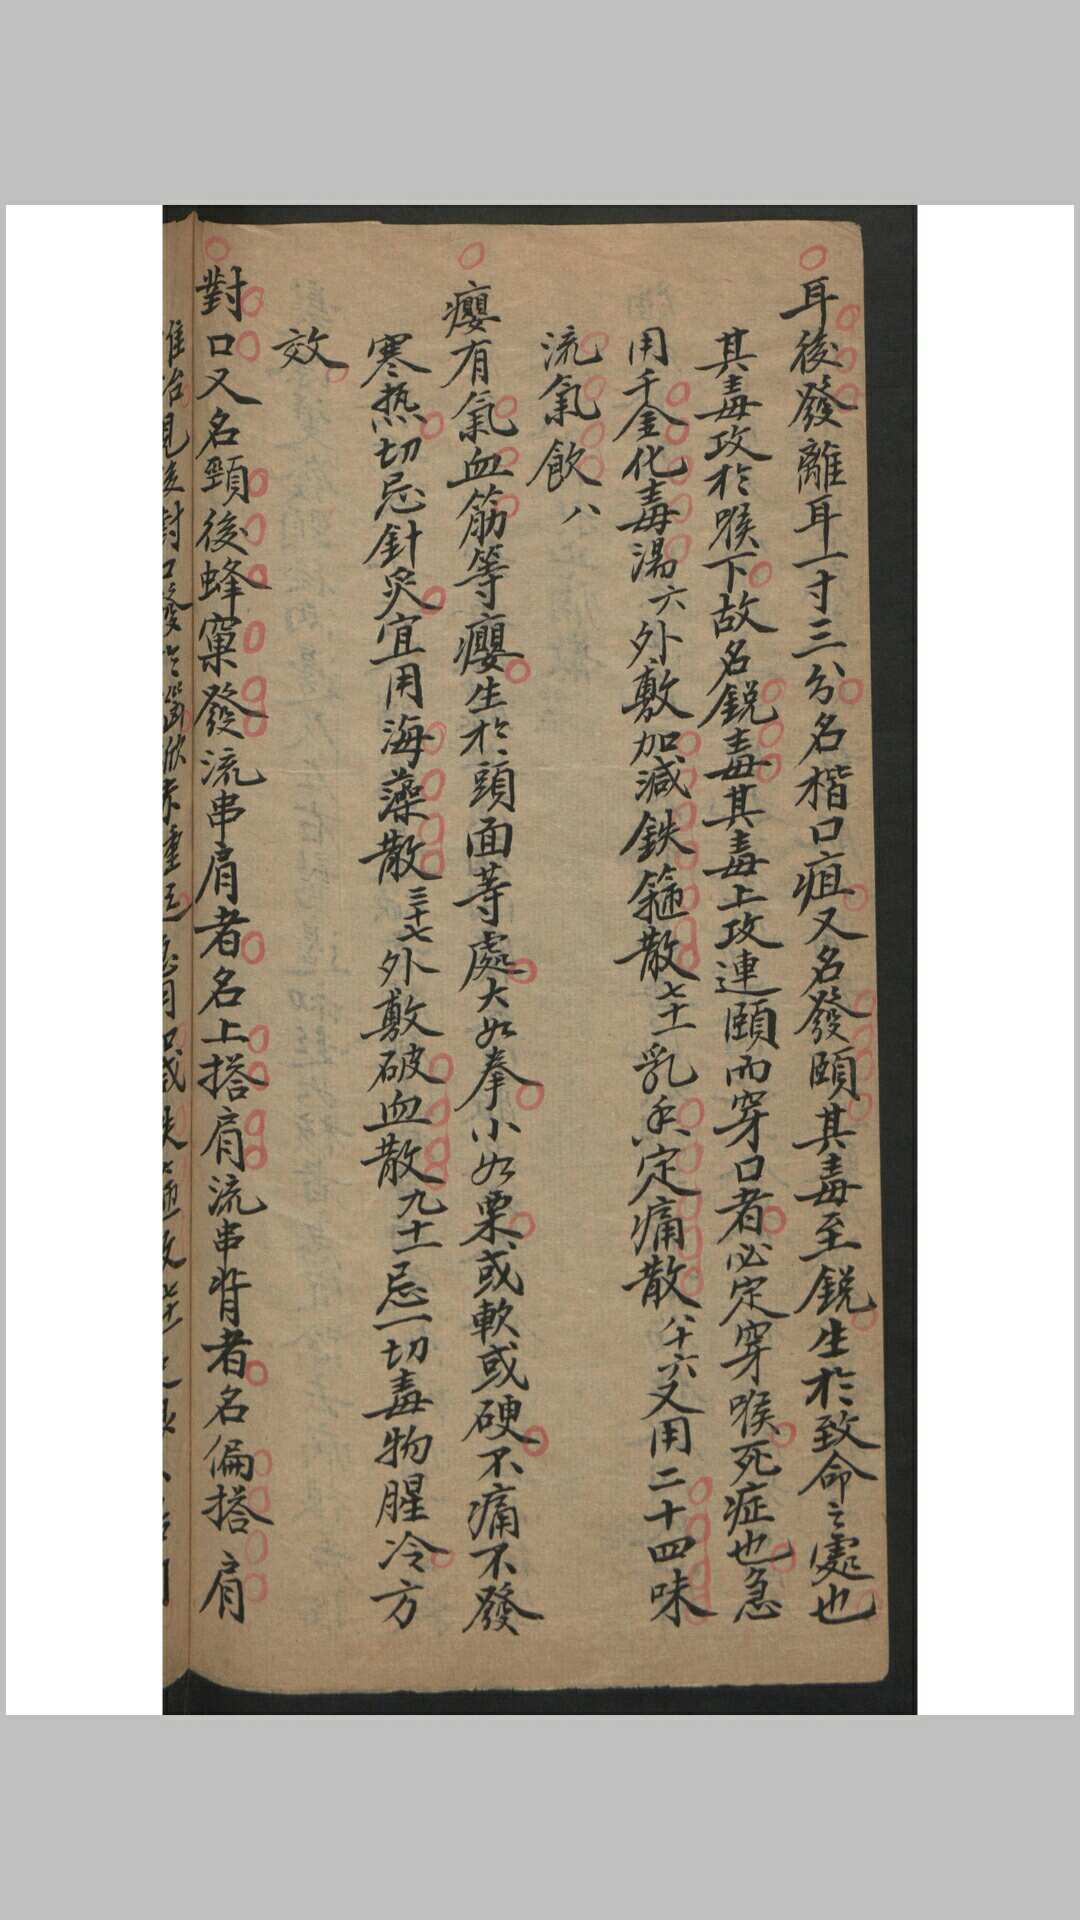 耳後發離耳一寸三分名楷口疽又名發頤其毒至銳生於致命之處也
其毒攻於喉下故名銳毒其毒上攻連頤而穿口者必定穿喉死症也急
用千金化毒湯六外敷加減鉄箍散七十一乳香定痛散八十六又用二十四味
流氣飲八
癭有氣血筋等癭生於頭面等處大如拳小如栗或軟或硬不痛不發
寒热切忌針灸宜用海藻散三十七外敷破血散九十一忌一切毒物腥冷方
效
對口又名頸後蜂窠發流串肩者名上搭肩流串背者名偏搭肩